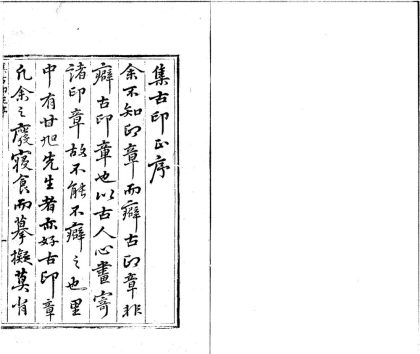 集古印正序
余不知印章而癖古印章非
癖古印章也以古人心畫寄
諸印章故不能不癖之也里
中有甘旭先生者亦好古印章
凡余之廢寢食而摹擬莫肖